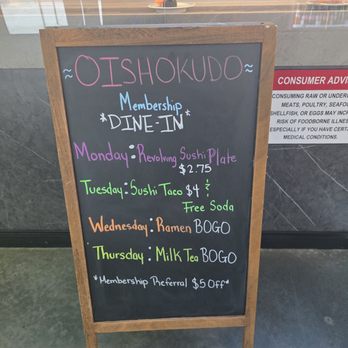 ≈OISHOKUDO≈
Membership
*DINE-IN*
Monday: Revolving Sushi Plate
$2.75
Tuesday: Sushi Taco $4 &
Free Soda
Wednesday: Ramen BOGO
Thursday: Milk Tea BOGO
*Membership Referral $5 Off*
CONSUMER ADVI
CONSUMING RAW OR UNDER
MEATS, POULTRY, SEAFO
SHELLFISH, OR EGGS MAY INC
RISK OF FOODBORNE ILLNES
ESPECIALLY IF YOU HAVE CERT
MEDICAL CONDITIONS.